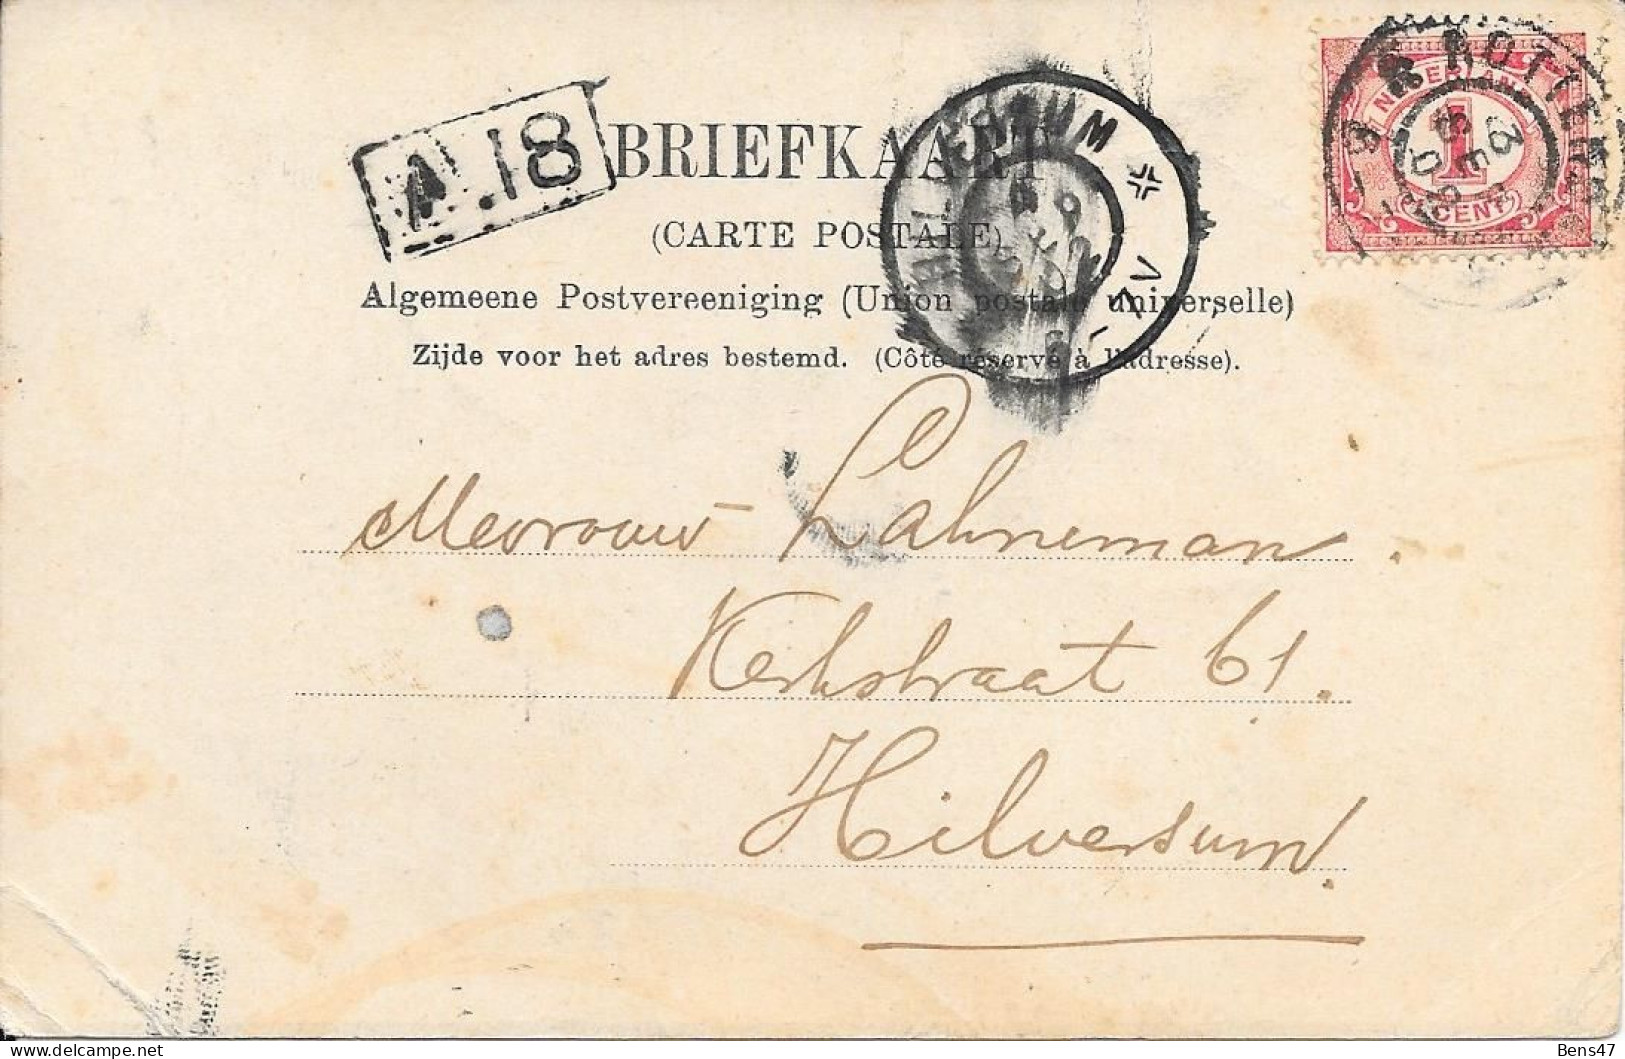 A.18
BRIEFKAART
(CARTE POSTALE)
Algemeene Postvereeniging (Union postale universelle)
Zijde voor het adres bestemd. (Côté réservé à l'adresse).
NEDERLAND
1
CENT
ROTTERD
Mevrouw Lahneman.
Kerkstraat 61.
Hilversum.
Bens47